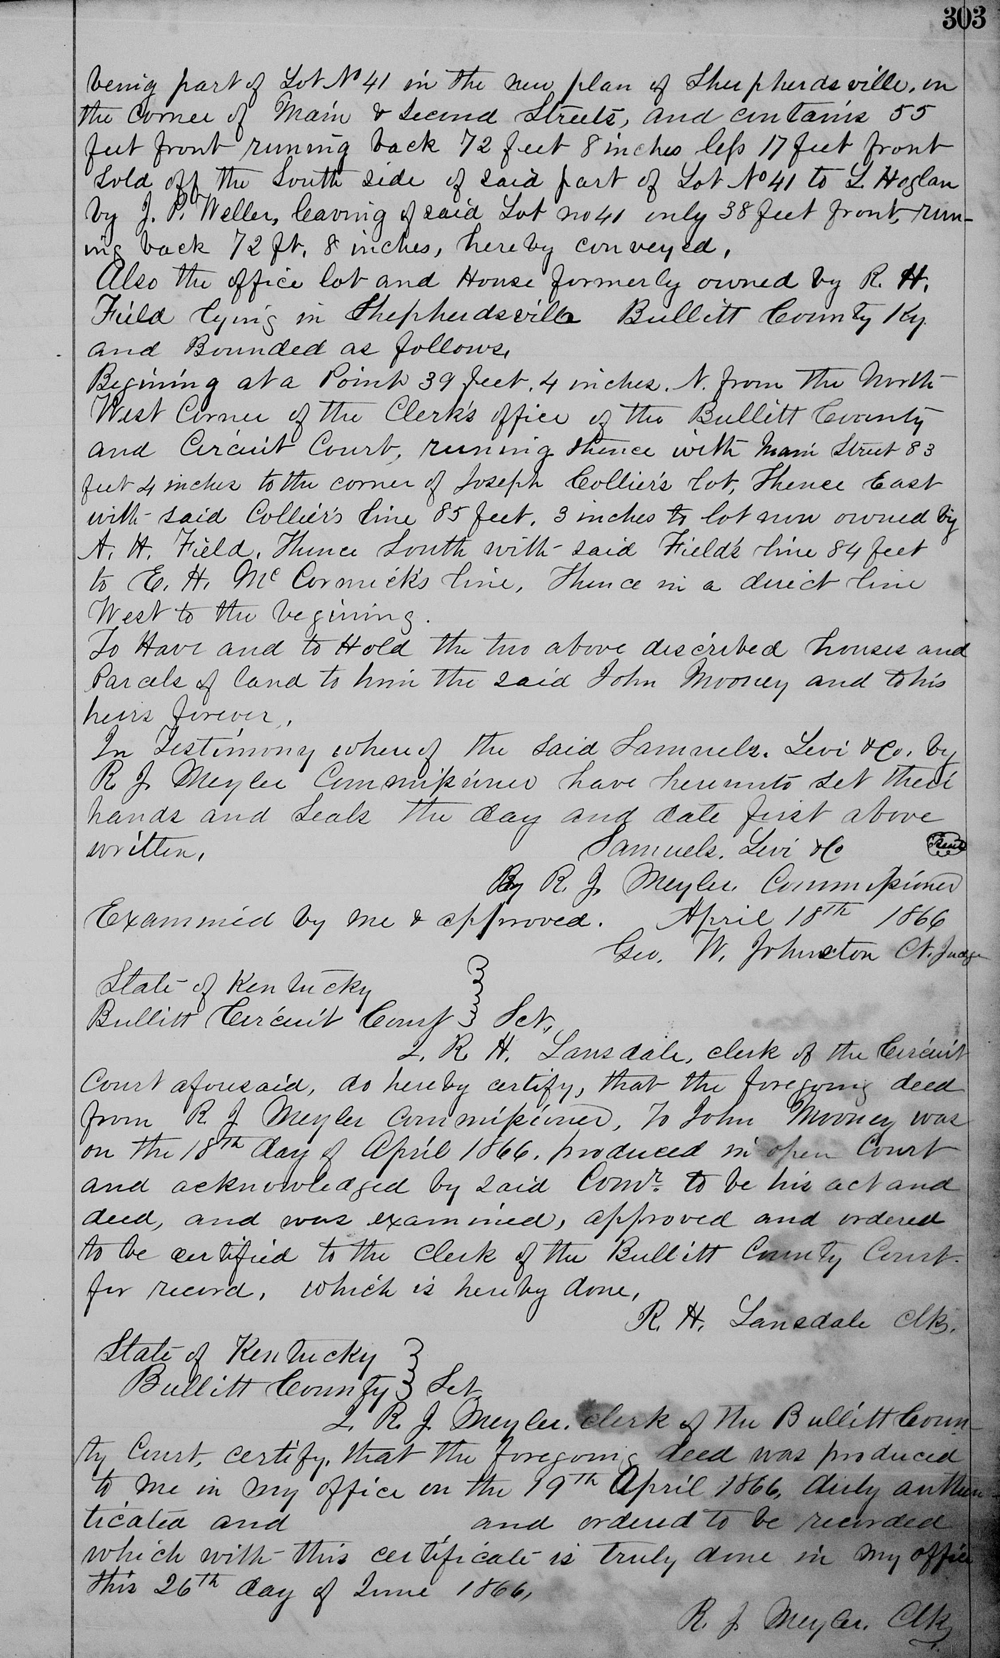 303
being part of Lot No 41 in the new plan of Shepherdsville, on
the Corner of Main & Second Streets, and contains 55
feet front running back 72 feet 8 inches less 17 feet front
sold off the South side of said part of Lot No 41 to L. Hoglan
by J. P. Weller, leaving of said Lot no 41 only 38 feet front, run-
ing back 72 ft. 8 inches, hereby conveyed,
Also the office lot and House formerly owned by R. H.
Field lying in Shepherdsville Bullitt County Ky.
and Bounded as follows,
Begining at a Point 39 feet. 4 inches. N. from the North
West Corner of the Clerk's office of the Bullitt County
and Circuit Court, running thence with Main Street 83
feet 4 inches to the corner of Joseph Collier's lot, Thence East
with said Collier's line 85 feet, 3 inches to lot now owned by
A. H. Field, Thence South with said Field's line 84 feet
to E. H. Mc Cormick's line, Thence in a direct line
West to the begining.
To Have and to Hold the two above discribed houses and
Parcels of land to him the said John Mooney and to his
heirs forever,
In Testimony whereof the said Samuels. Levi & Co. by
R J Meyler Commissioner have hereunto set their
hands and seals the day and date first above
written,                Samuels. Levi & Co (Seal)
By R. J. Meyler. Commissioner
Examined by me & approved. April 18th 1866
Geo. W. Johnston Ct. Judge
State of Kentucky
Bullitt Circuit Court } Sct,
I. R. H. Lansdale, clerk of the Circuit
Court aforesaid, do hereby certify, that the foregoing deed
from R J Meyler Commissioner, To John Mooney was
on the 18th day of April 1866. produced in open Court
and acknowledged by said Comr. to be his act and
deed, and was examined, approved and ordered
to be certified to the Clerk of the Bullitt County Court
for record, which is hereby done,
R. H. Lansdale Clk.
State of Kentucky
Bullitt County } Sct,
I. R. J. Meyler. clerk of the Bullitt Coun-
ty Court, certify, that the foregoing deed was produced
to me in my office on the 19th April 1866, duly authen-
ticated and                and ordered to be recorded
which with this certificate is truly done in my office
this 26th day of June 1866,
R. J. Meyler. Clk